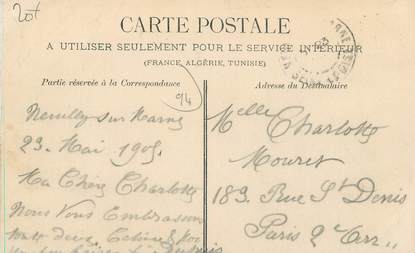 20f
CARTE POSTALE
A UTILISER SEULEMENT POUR LE SERVICE INTÉRIEUR
(FRANCE, ALGÉRIE, TUNISIE)
Partie réservée à la Correspondance
Adresse du Destinataire
94
Neuilly sur Marne
23 Mai 1905.
Ma Chère Charlotte
Nous Vous Embrassons
tout deux,
Melle Charlotte
Mouret
183 Rue St Denis
Paris 2e Arr